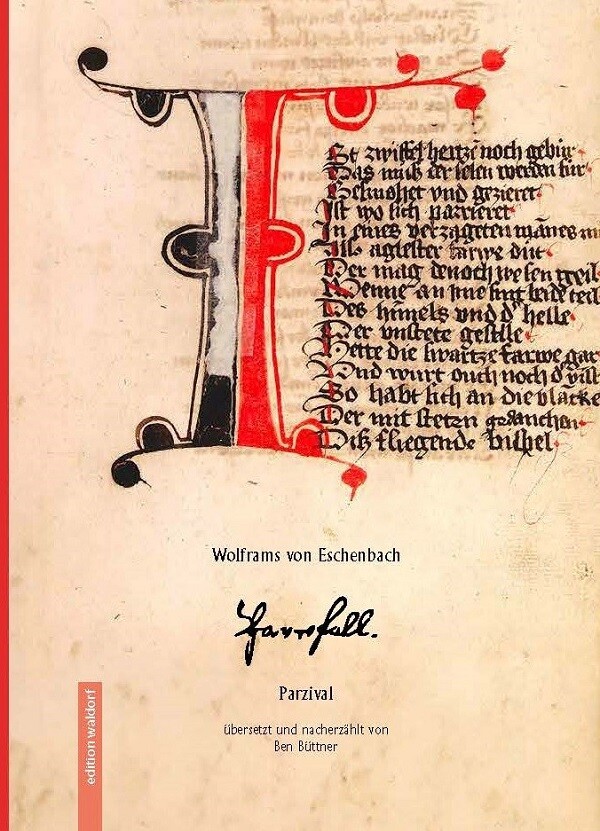 ISt zwiffel hertzē noch gebur
Das muß der selen werden sur
Gesmohet vnd gezieret
Ist wo sich parrieret
In eines verzageten mānes
Als aglester farwe dut
Der mag denoch wesen geil
Wenne an ime sint beide teil
Des himels vnd d' helle
Der vnstete geselle
Hette die swartze farwe gar
Vnd wurt ouch noch d'
So habt sich an die blacke
Der mit steten gedancken
Diß fliegende bispel
Wolframs von Eschenbach
Parzival
übersetzt und nacherzählt von
Ben Büttner
edition waldorf